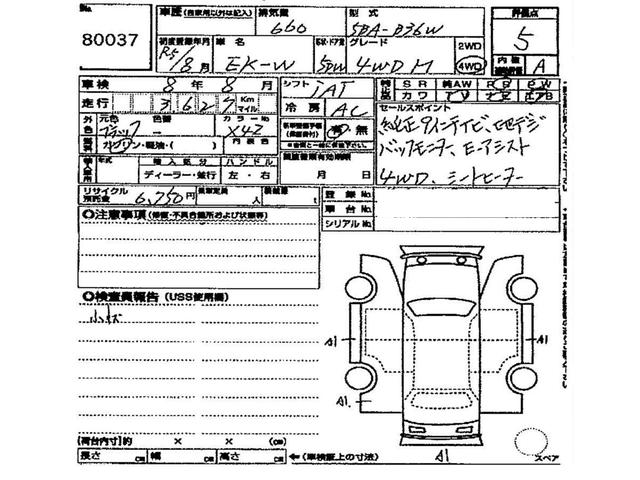 No.
80037
車歴 (自家用以外は記入)
排気量
660
型式
5BA-B36W
評価点
5
初度登録年月
R5/8月
車名
EK-W
ドア
5DW
グレード
4WD M
2WD
4WD
内装
A
車検
8年8月
シフト
IAT
SR
純AW
PS
PW
カワ
TV
ナビ
エアB
走行
3627
Km
マイル
冷房
AC
セールスポイント
純正9インチナビ、地デジ
バックモニター、E-アシスト
4WD、シートヒーター
外色
元色
ブラック
色替
カラーNo
X42
内装色
有・無
燃料
ガソリン・軽油・( )
輸入車
年式
輸入区分
ハンドル
ディーラー・並行
左・右
月 日
登録No.
車台No.
シリアルNo.
リサイクル預託金
6,750円
乗車定員
人
積載量
t
◎注意事項 (修復・不具合箇所および状態等)
◎検査員報告 (USS使用欄)
小キズ
A1
A1
A1
A1
スペア
(荷台内寸)約 × × (cm)
長さ cm 幅 cm 高さ cm
←(車検証上の寸法)